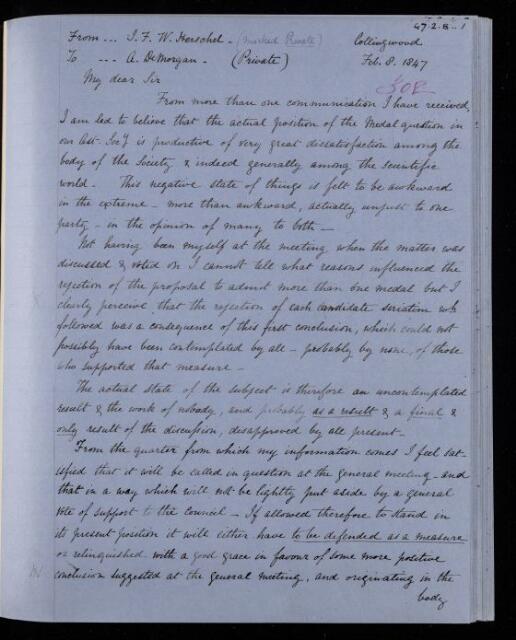 47.2.8 - 1
From - - - J. F. W. Herschel - (marked Private) Collingwood
To - - - A. DeMorgan - (Private) Feb. 8. 1847
My dear Sir
From more than one communication I have received,
I am led to believe that the actual position of the Medal question in
our Ast. Socy is productive of very great dissatisfaction among the
body of the Society & indeed generally among the scientific
world - This negative state of things is felt to be awkward
in the extreme - more than awkward, actually unjust to one
party, - in the opinion of many to both -
Not having been myself at the meeting when the matter was
discussed & voted on I cannot tell what reasons influenced the
rejection of the proposal to admit more than one medal but I
clearly perceive that the rejection of each candidate seriatim wh
followed was a consequence of this first conclusion, which could not
possibly have been contemplated by all - probably by none, of those
who supported that measure -
The actual state of the subject is therefore an uncontemplated
result & the work of nobody, and probably as a result & a final &
only result of the discussion, disapproved by all present -
From the quarter from which my information comes I feel sat-
isfied that it will be called in question at the general meeting - and
that in a way which will not be lightly put aside by a general
vote of support to the council - If allowed therefore to stand in
its present position it will either have to be defended as a measure
or relinquished with a good grace in favour of some more positive
conclusion suggested at the general meeting, and originating in the
body